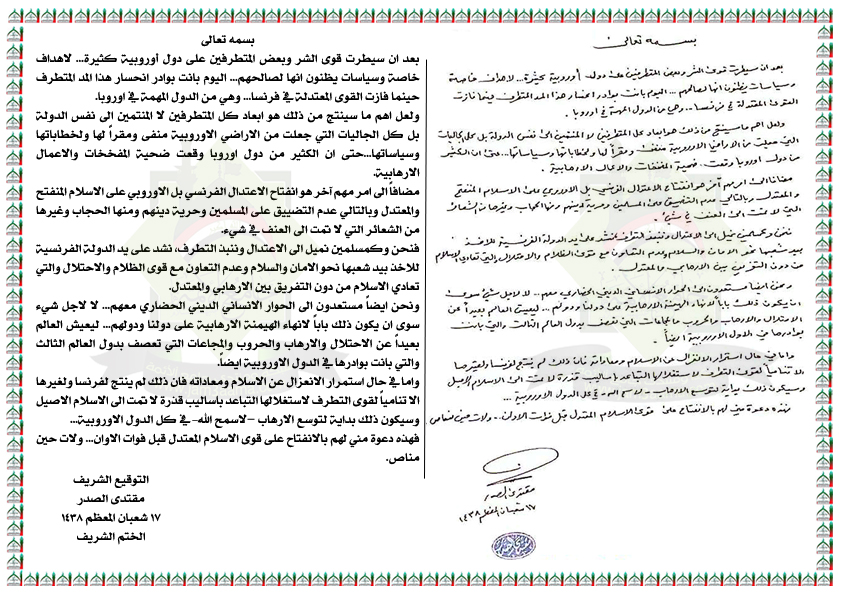 بسمه تعالى
بعد ان سيطرت قوى الشر وبعض المتطرفين على دول أوروبية كثيرة... لاهداف خاصة
وسياسات يظنون انها لصالحهم... اليوم بانت بوادر انحسار هذا المد المتطرف حينما فازت
القوى المعتدلة في فرنسا... وهي من الدول المهمة في اوروبا.
ولعل اهم ما سينتج من ذلك هو ابعاد كل المتطرفين لا المنتمين الى نفس الدولة بل كل الجاليات
التي جعلت من الاراضي الاوروبية منفى ومقراً لها ولخطاباتها وسياساتها... حتى ان الكثير
من دول اوروبا وقعت ضحية المفخخات والاعمال الارهابية.
مضافاً الى امر مهم آخر هو انفتاح الاعتدال الفرنسي بل الاوروبي على الاسلام المنفتح
والمعتدل وبالتالي عدم التضييق على المسلمين وحرية دينهم ومنها الحجاب وغيرها من الشعائر
التي لا تمت الى العنف في شيء.
فنحن وكمسلمين نميل الى الاعتدال وننبذ التطرف نشد على يد الدولة الفرنسية للاخذ
بيد شعبها نحو الامان والسلام وعدم التعاون مع قوى الظلام والاحتلال والتي تعادي الاسلام
من دون التفريق بين الارهابي والمعتدل.
ونحن ايضاً مستعدون الى الحوار الانساني الديني الحضاري معهم... لا لاجل شيء سوى
ان يكون ذلك باباً لانهاء الهيمنة الارهابية على دولنا ودولهم... ليعيش العالم بعيداً عن
الاحتلال والارهاب والحروب والمجاعات التي تعصف بدول العالم الثالث والتي بانت
بوادرها في الدول الاوروبية ايضاً.
واما في حال استمرار الانعزال عن الاسلام ومعاداته فان ذلك لم ينتج لفرنسا ولغيرها
الا تنامياً لقوى التطرف لاستغلالها التباعد باساليب قذرة لا تمت الى الاسلام الاصيل
وسيكون ذلك بداية لتوسع الارهاب - لاسمح الله - في كل الدول الاوروبية...
فهذه دعوة مني لهم بالانفتاح على قوى الاسلام المعتدل قبل فوات الاوان... ولات حين مناص
مقتدى الصدر
١٧ شعبان المعظم ١٤٣٨
بسمه تعالى
بعد ان سيطرت قوى الشر وبعض المتطرفين على دول أوروبية كثيرة... لاهداف
خاصة وسياسات يظنون انها لصالحهم... اليوم بانت بوادر انحسار هذا المد المتطرف
حينما فازت القوى المعتدلة في فرنسا... وهي من الدول المهمة في اوروبا.
ولعل اهم ما سينتج من ذلك هو ابعاد كل المتطرفين لا المنتمين الى نفس الدولة
بل كل الجاليات التي جعلت من الاراضي الاوروبية منفى ومقراً لها ولخطاباتها
وسياساتها...حتى ان الكثير من دول اوروبا وقعت ضحية المفخخات والاعمال
الارهابية.
مضافاً الى امر مهم آخر هو انفتاح الاعتدال الفرنسي بل الاوروبي على الاسلام المنفتح
والمعتدل وبالتالي عدم التضييق على المسلمين وحرية دينهم ومنها الحجاب وغيرها
من الشعائر التي لا تمت الى العنف في شيء.
فنحن وكمسلمين نميل الى الاعتدال وننبذ التطرف، نشد على يد الدولة الفرنسية
للاخذ بيد شعبها نحو الامان والسلام وعدم التعاون مع قوى الظلام والاحتلال والتي
تعادي الاسلام من دون التفريق بين الارهابي والمعتدل.
ونحن ايضاً مستعدون الى الحوار الانساني الديني الحضاري معهم... لا لاجل شيء
سوى ان يكون ذلك باباً لانهاء الهيمنة الارهابية على دولنا ودولهم... ليعيش العالم
بعيداً عن الاحتلال والارهاب والحروب والمجاعات التي تعصف بدول العالم الثالث
والتي بانت بوادرها في الدول الاوروبية ايضاً.
واما في حال استمرار الانعزال عن الاسلام ومعاداته فان ذلك لم ينتج لفرنسا ولغيرها
الا تنامياً لقوى التطرف لاستغلالها التباعد باساليب قذرة لا تمت الى الاسلام الاصيل
وسيكون ذلك بداية لتوسع الارهاب -لاسمح الله- في كل الدول الاوروبية...
فهذه دعوة مني لهم بالانفتاح على قوى الاسلام المعتدل قبل فوات الاوان... ولات حين
مناص.
التوقيع الشريف
مقتدى الصدر
١٧ شعبان المعظم ١٤٣٨
الختم الشريف